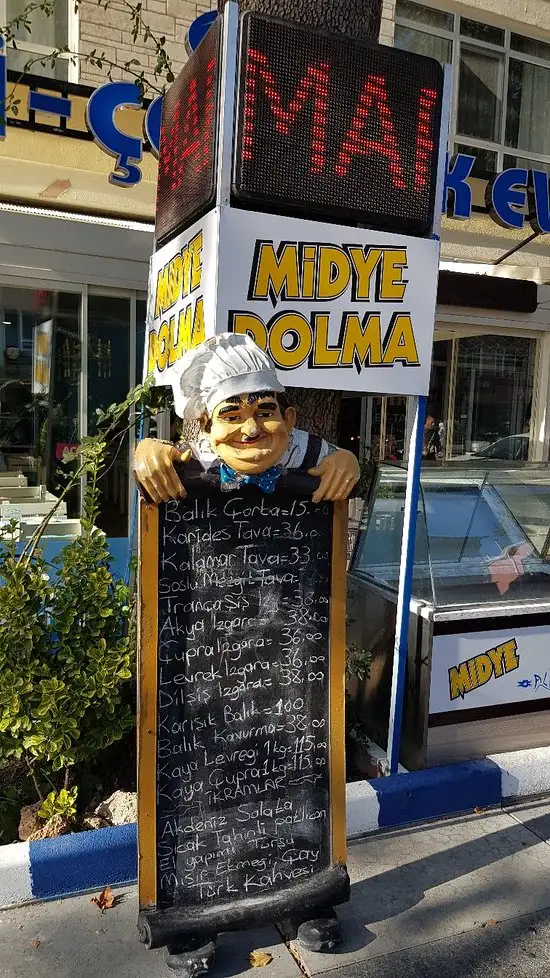 MAİ
MİDYE
DOLMA
MİDYE
DOLMA
Balık Çorba=15.00
Karides Tava=36.00
Kalamar Tava=33.00
Soslu Mezgit Tava=
Trança Şiş
Akya Izgara= 38.00
Çupra Izgara= 36.00
Levrek Izgara= 36.00
Dilşiş Izgara= 38.00
Karışık Balık=100
Balık Kavurma=38.00
Kaya Levreği 1kg=115.00
Kaya Çupra 1kg=115.00
İKRAMLAR
Akdeniz Salata
Sıcak Tahinli patlıcan
El yapımı Turşu
Mısır Ekmeği, Çay
Türk Kahvesi
MİDYE